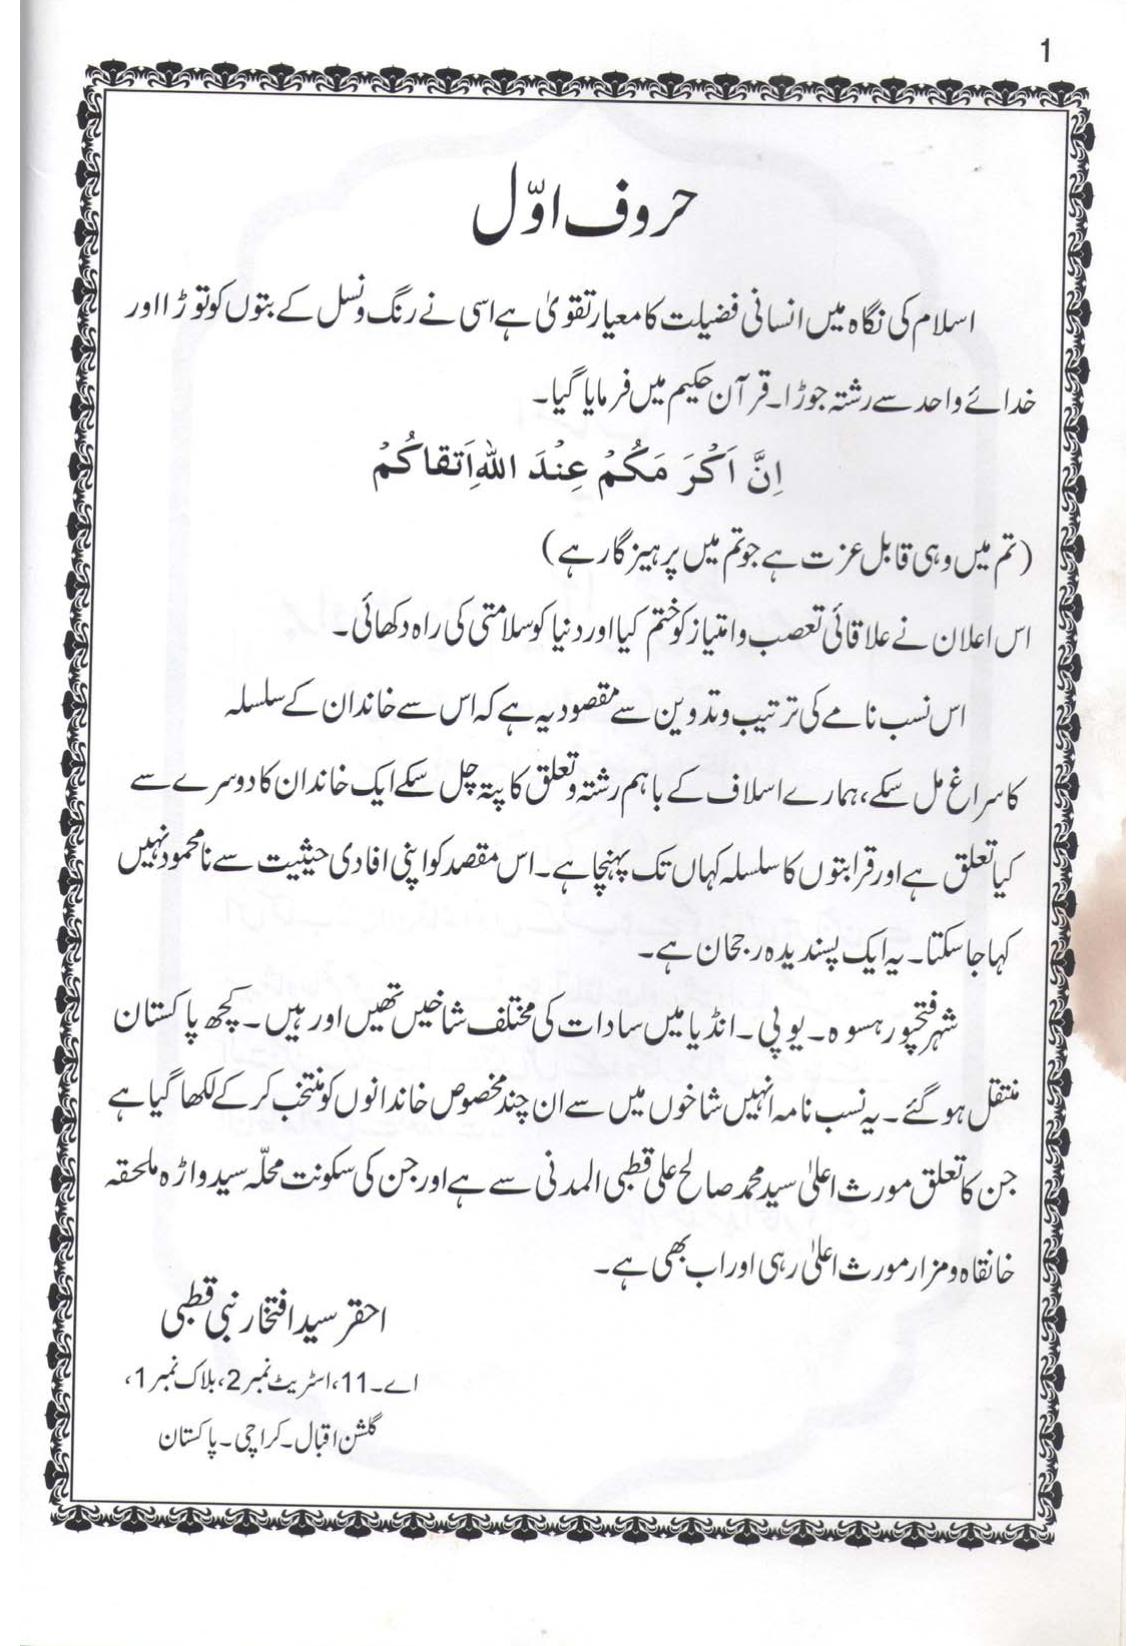 1
حروف اوّل
اسلام کی نگاہ میں انسانی فضیلت کا معیار تقویٰ ہے اسی نے رنگ و نسل کے بتوں کو توڑا اور
خدائے واحد سے رشتہ جوڑا۔ قرآن حکیم میں فرمایا گیا۔
اِنَّ اَکْرَ مَکُمْ عِنْدَ اللہِ اَتقاکُمْ
(تم میں وہی قابل عزت ہے جو تم میں پرہیز گار ہے)
اس اعلان نے علاقائی تعصب و امتیاز کو ختم کیا اور دنیا کو سلامتی کی راہ دکھائی۔
اس نسب نامے کی ترتیب و تدوین سے مقصود یہ ہے کہ اس سے خاندان کے سلسلہ
کا سراغ مل سکے، ہمارے اسلاف کے باہم رشتہ و تعلق کا پتہ چل سکے ایک خاندان کا دوسرے سے
کیا تعلق ہے اور قرابتوں کا سلسلہ کہاں تک پہنچا ہے۔ اس مقصد کو اپنی افادی حیثیت سے نا محمود نہیں
کہا جا سکتا۔ یہ ایک پسندیدہ رجحان ہے۔
شہر فتحپور ہسوہ۔ یو پی۔ انڈیا میں سادات کی مختلف شاخیں تھیں اور ہیں۔ کچھ پاکستان
منتقل ہو گئے۔ یہ نسب نامہ انہیں شاخوں میں سے ان چند مخصوص خاندانوں کو منتخب کر کے لکھا گیا ہے
جن کا تعلق مورث اعلیٰ سید محمد صالح علی قطبی المدنی سے ہے اور جن کی سکونت محلّہ سید واڑہ ملحقہ
خانقاہ و مزار مورث اعلیٰ رہی اور اب بھی ہے۔
احقر سید افتخار نبی قطبی
اے۔11، اسٹریٹ نمبر 2، بلاک نمبر 1،
گلشن اقبال۔ کراچی۔ پاکستان